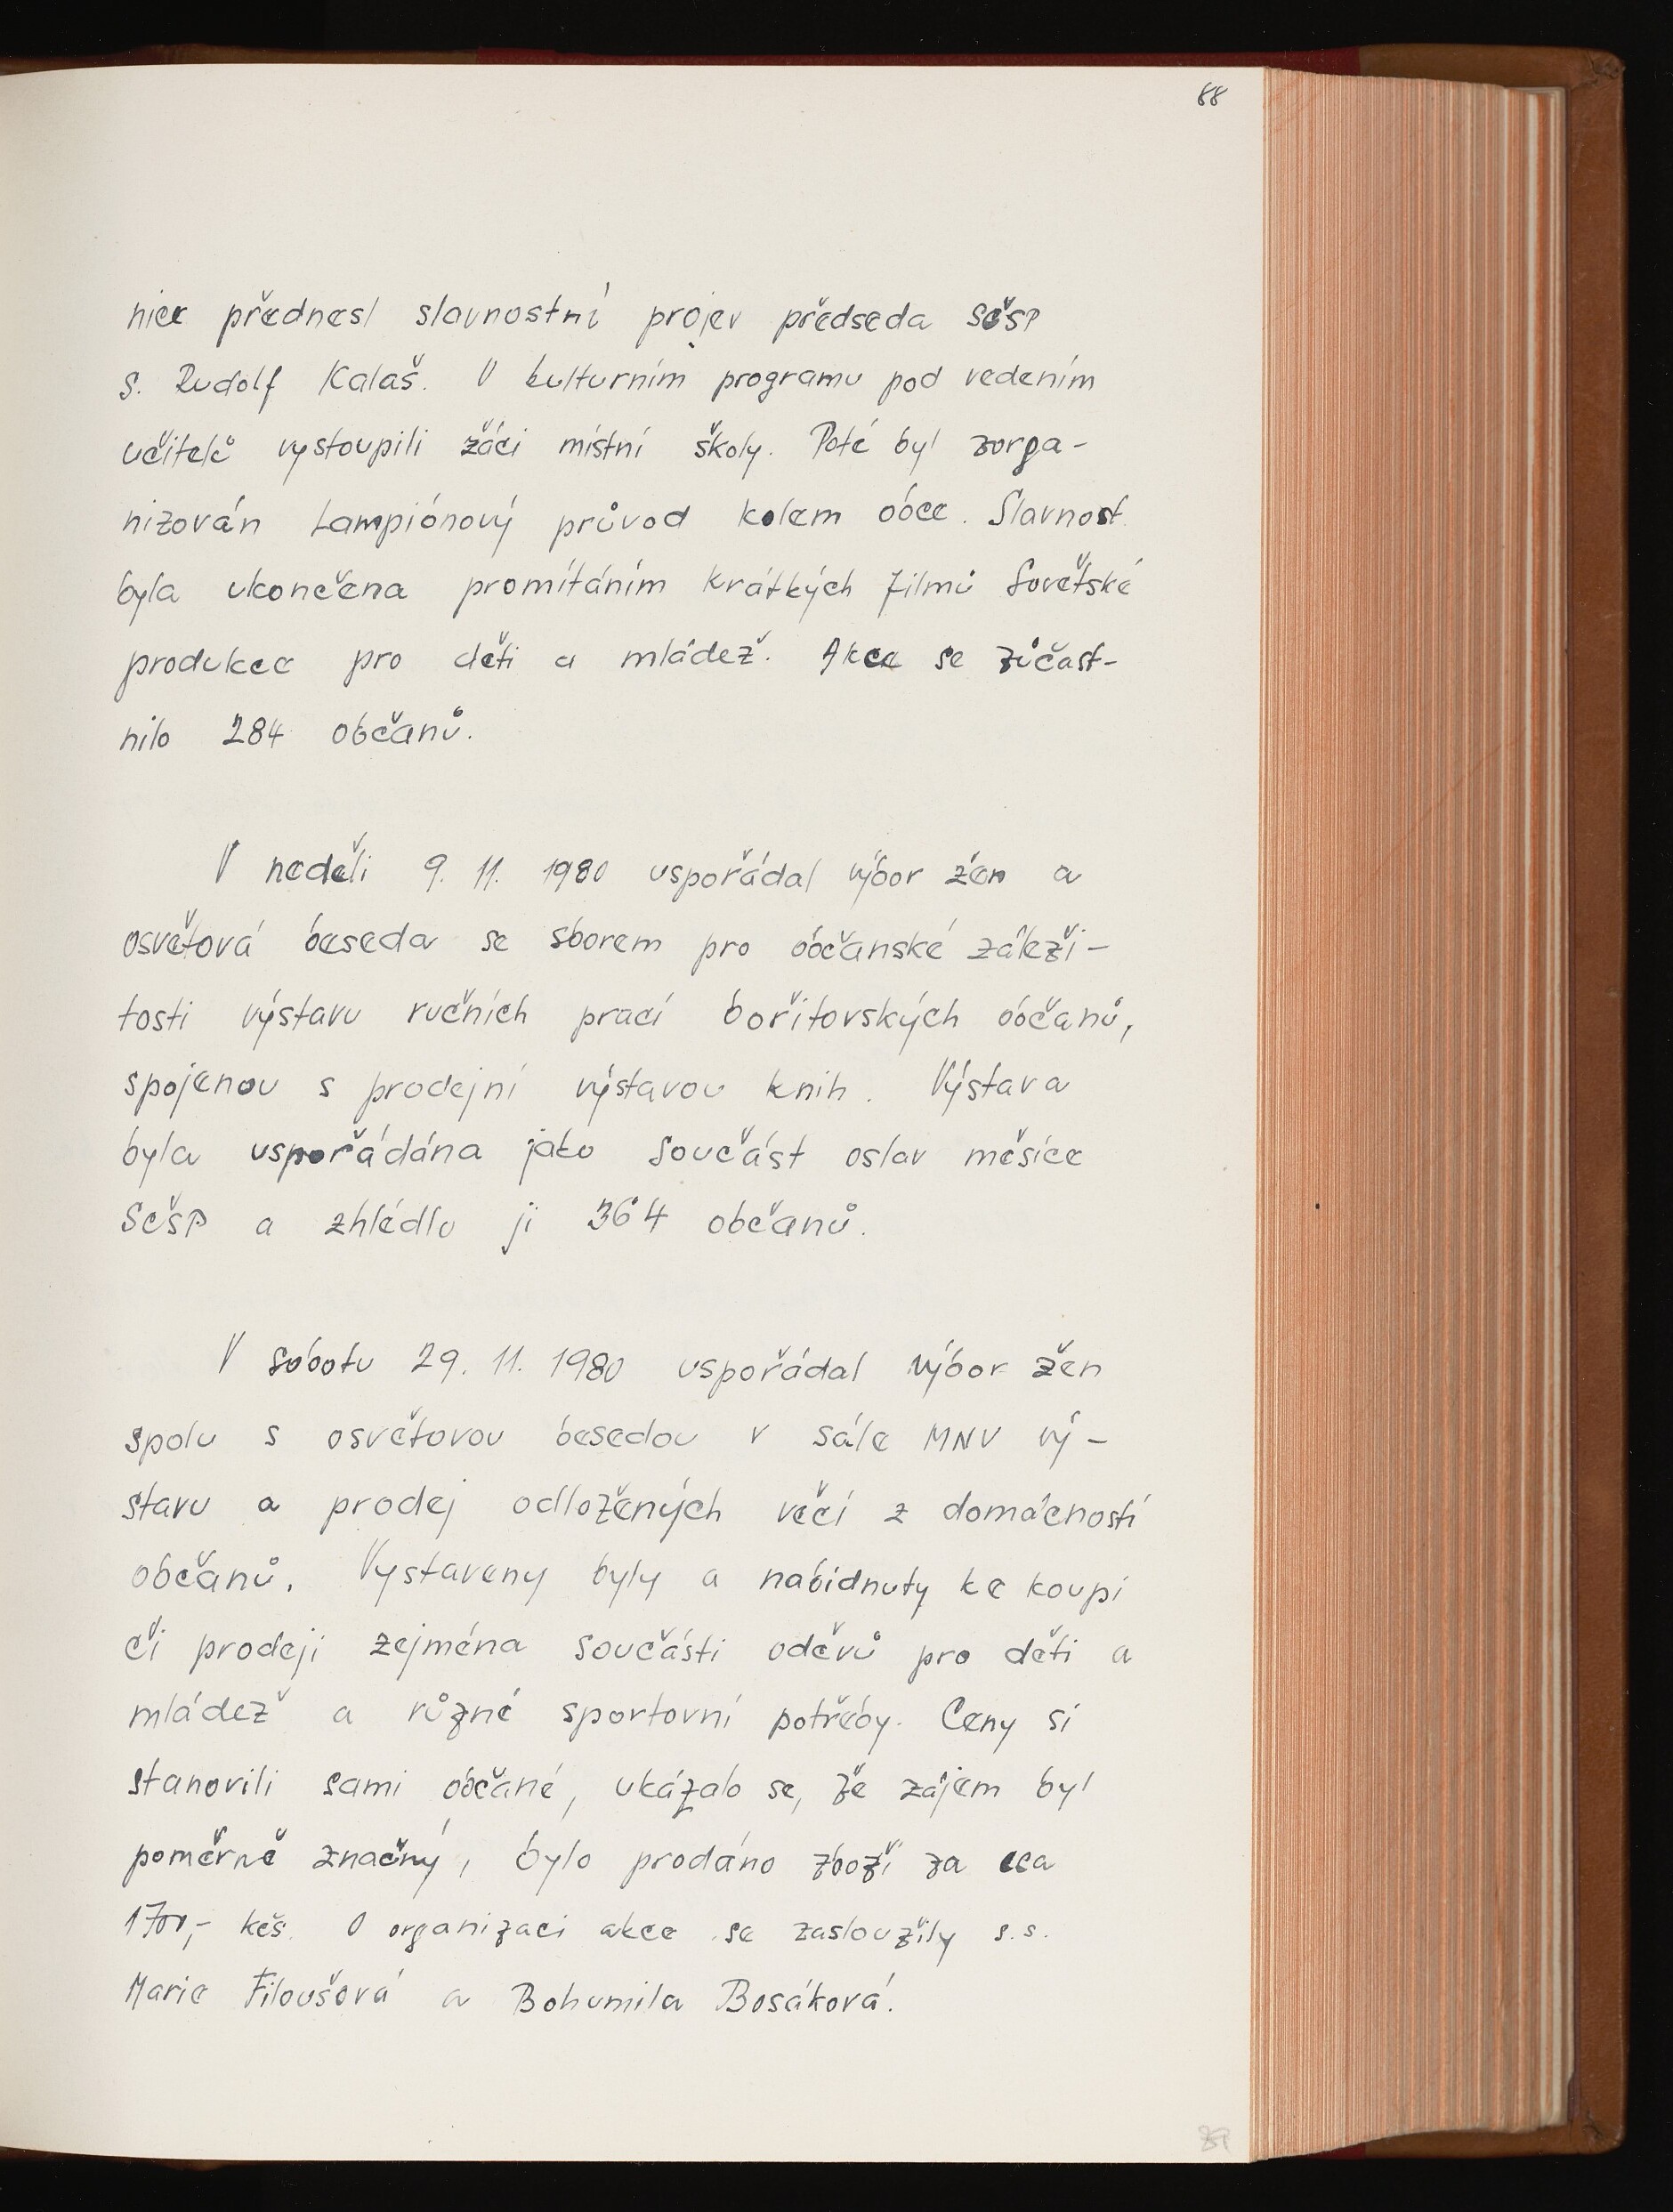 88
nice přednesl slavnostní projev předseda SČSP
s. Rudolf Kalaš. V kulturním programu pod vedením
učitelů vystoupili žáci místní školy. Poté byl zorga-
nizován Lampiónový průvod kolem obce. Slavnost
byla ukončena promítáním krátkých filmů Sovětské
produkce pro děti a mládež. Akce se zúčast-
nilo 284 občanů.
V neděli 9. 11. 1980 uspořádal výbor žen a
osvětová beseda se sborem pro občanské záleži-
tosti výstavu ručních prací bořitovských občanů,
spojenou s prodejní výstavou knih. Výstava
byla uspořádána jako součást oslav měsíce
SČSP a zhlédlo ji 364 občanů.
V sobotu 29. 11. 1980 uspořádal výbor žen
spolu s osvětovou besedou v sále MNV vý-
stavu a prodej odložených věcí z domácností
občanů. Vystaveny byly a nabídnuty ke koupi
či prodeji zejména součásti oděvů pro děti a
mládež a různé sportovní potřeby. Ceny si
stanovili sami občané, ukázalo se, že zájem byl
poměrně značný, bylo prodáno zboží za cca
1700,- kčs. O organizaci akce se zasloužily s.s.
Marie Filoušová a Bohumila Bosáková.